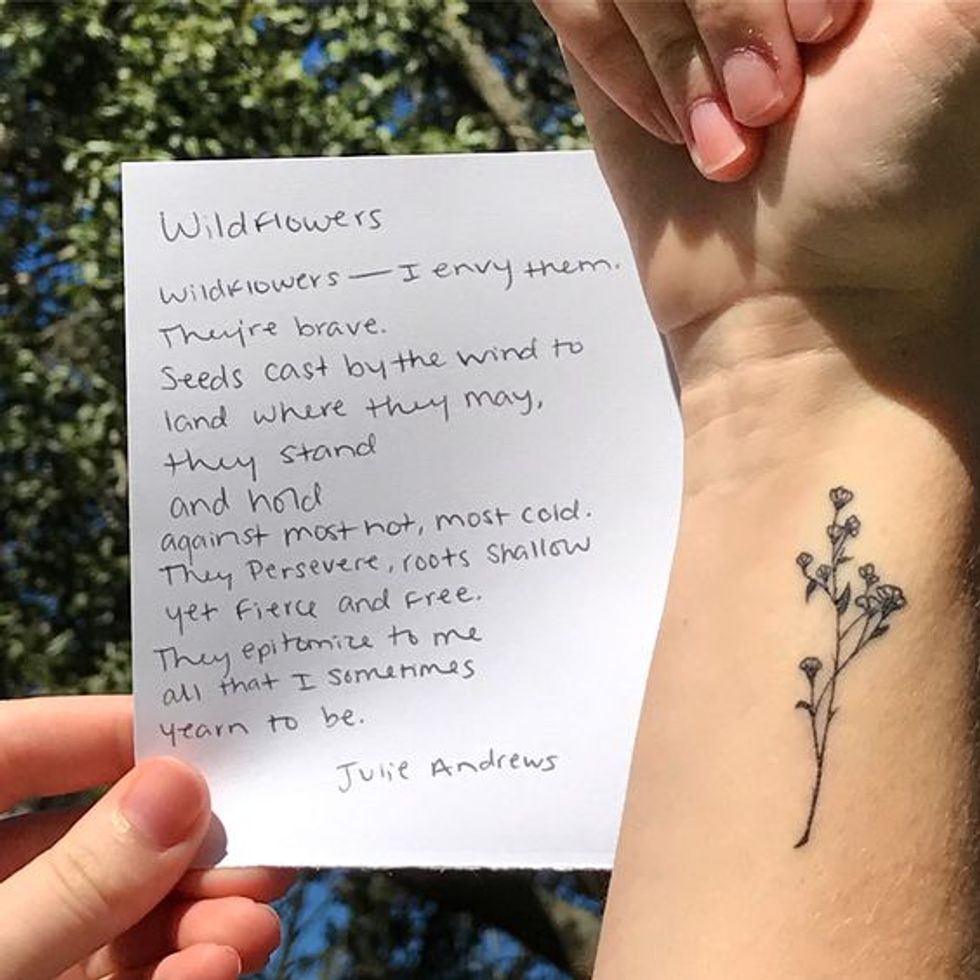 Wildflowers
Wildflowers — I envy them.
They're brave.
Seeds cast by the wind to
land where they may,
they stand
and hold
against most hot, most cold.
They Persevere, roots shallow
yet fierce and free.
They epitomize to me
all that I sometimes
yearn to be.
Julie Andrews